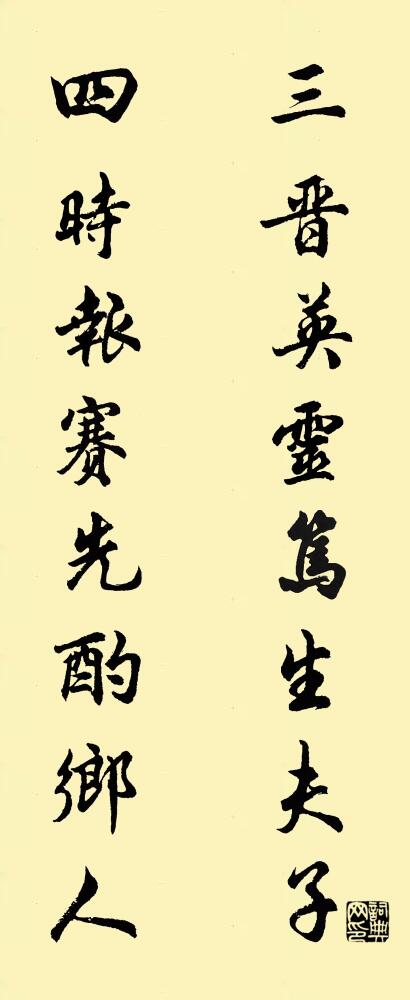 三晋英靈篤生夫子
四時報賽先酌鄉人
詞典网印